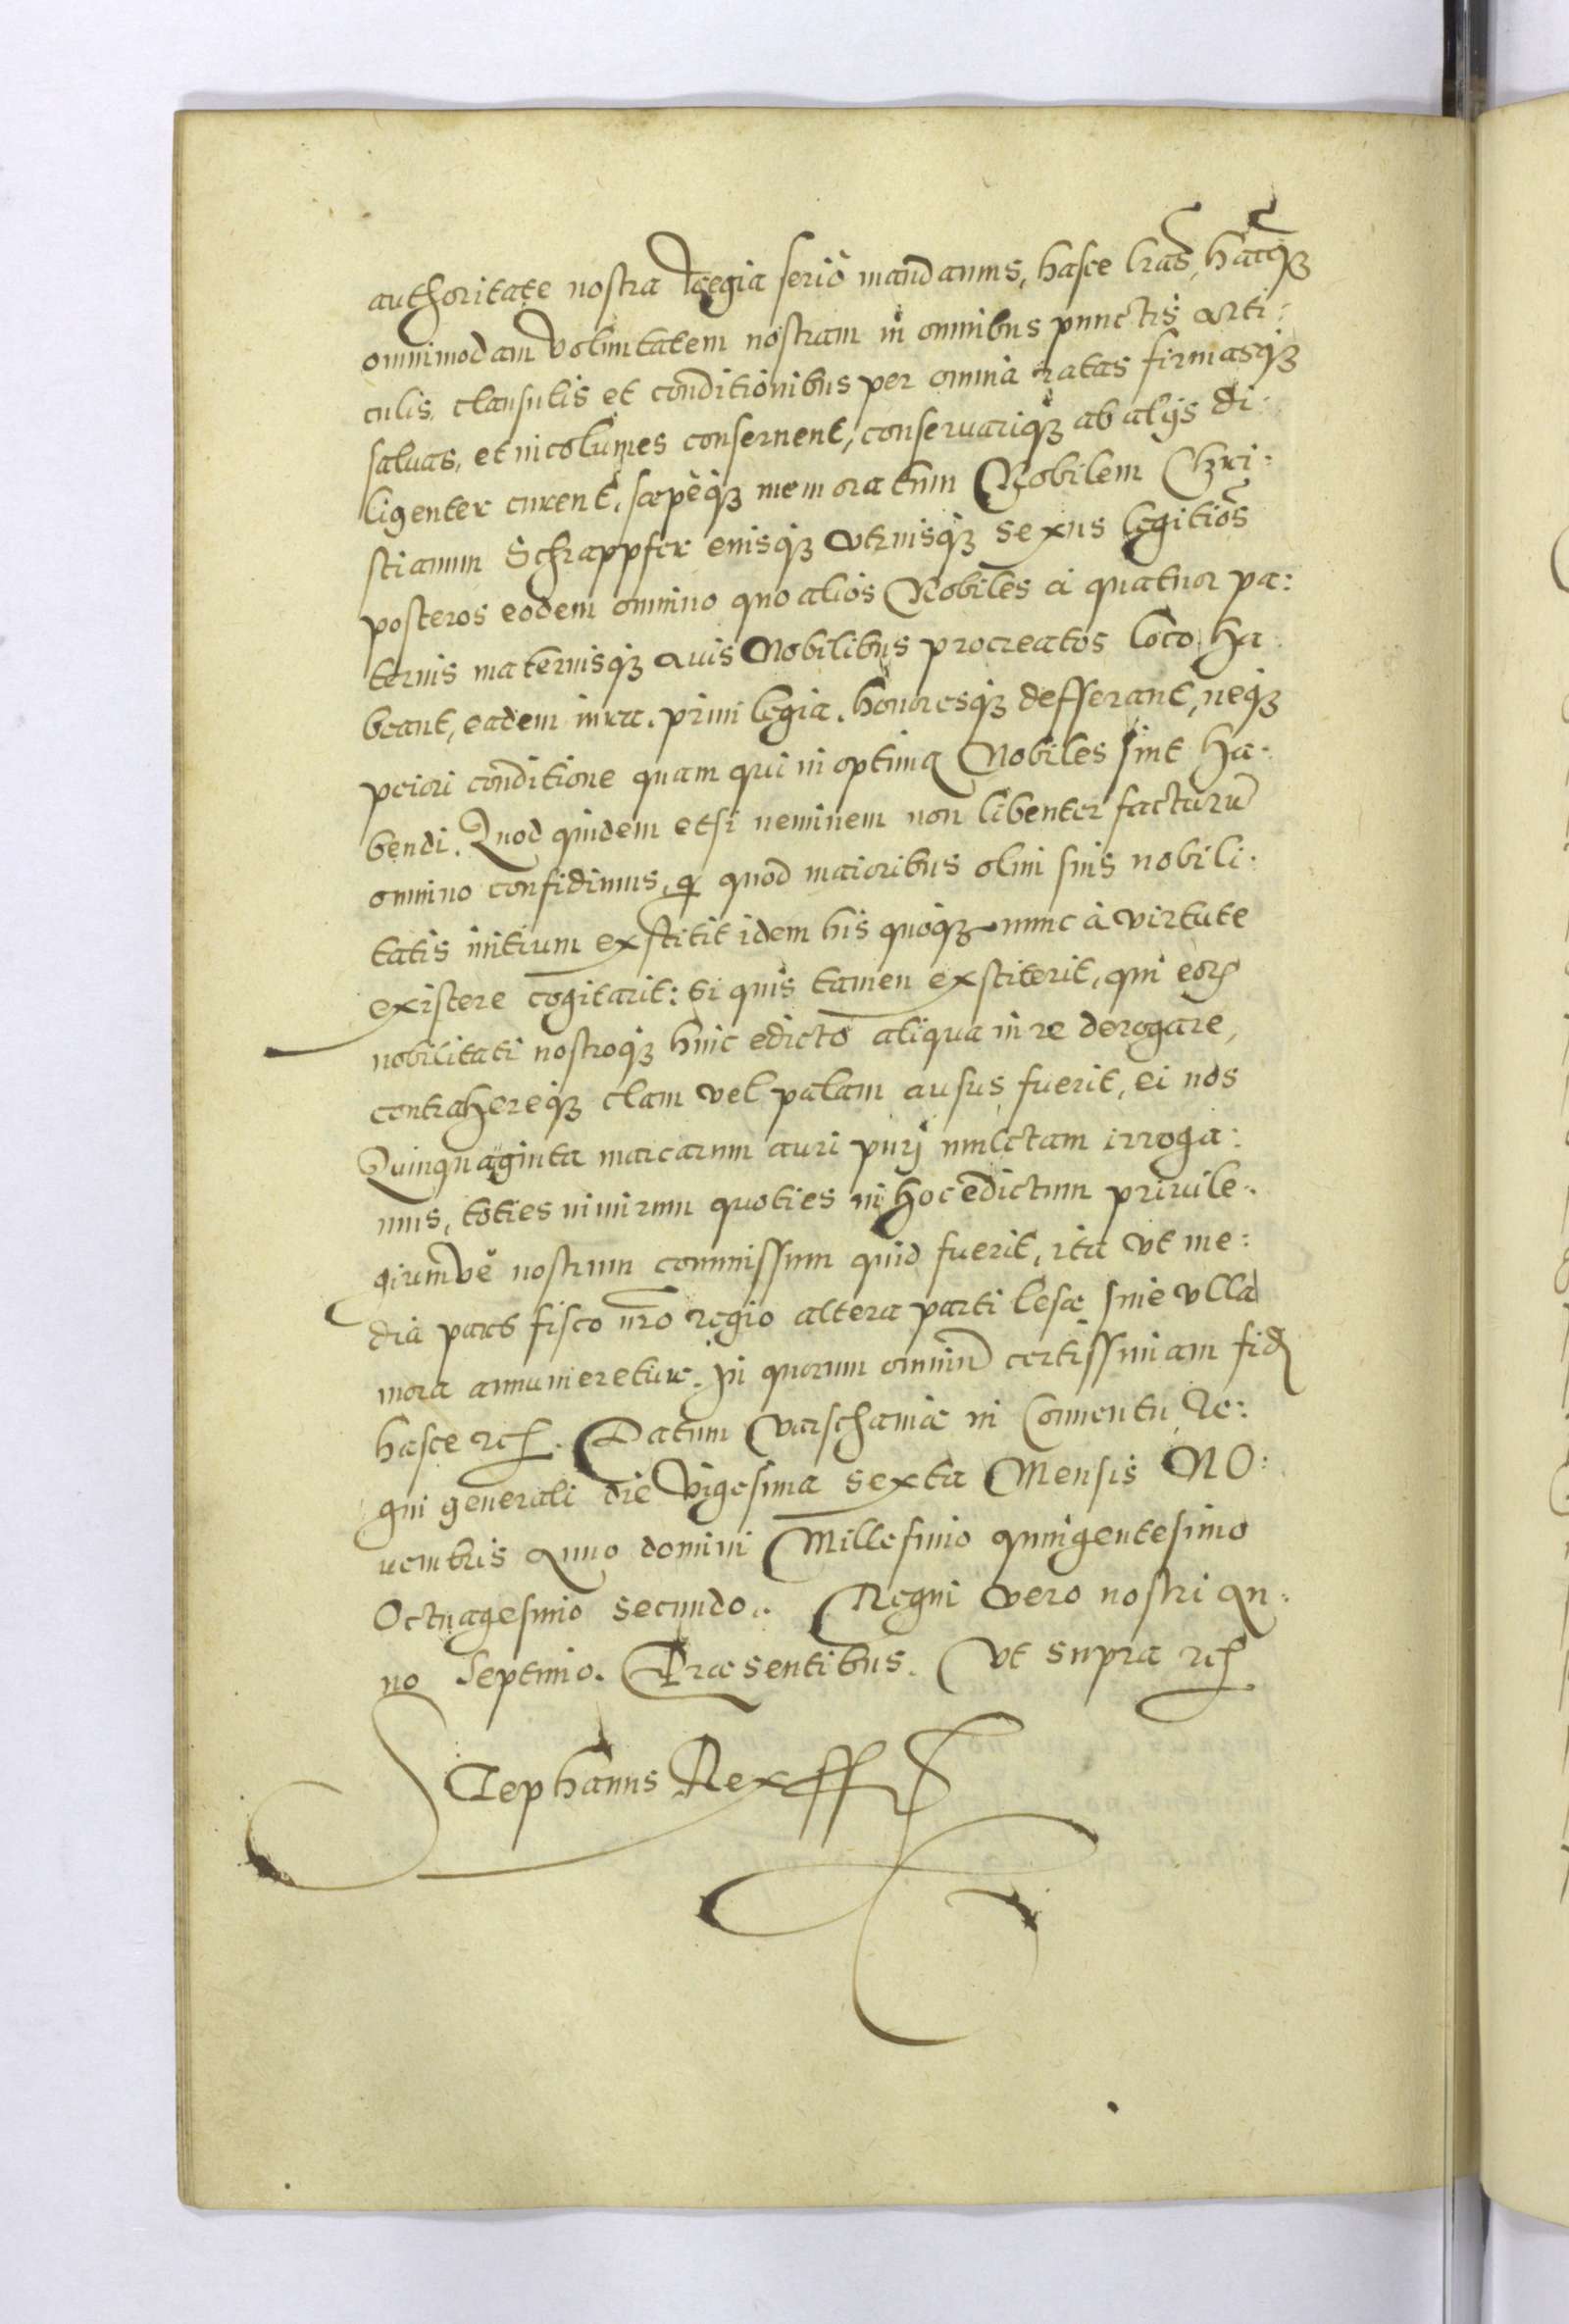 authoritate nostra Regia seriò mandamus, hasce lras, hãcq́ꝫ
omnimodam voluntatem nostram in omnibus punctis arti:
culis, clausulis et conditionibus per omnia ratas firmasq́ꝫ
saluas, et incolumes conseruent, conseruariq́ꝫ ab alijs di:
ligenter curent, sæpèq́ꝫ memoratum Nobilem Chri:
stianum Schrappfer eiusq́ꝫ vtriusq́ꝫ sexus legitiõs
posteros eodem omnino quo alios Nobiles à quatuor pa:
ternis maternisq́ꝫ auis Nobilibus procreatos loco ha
beant, eadem iura. priuilegia. honoresq́ꝫ defferant, neq́ꝫ
peiori conditione quam qui in optima Nobiles sint ha:
bendi. Quod quidem etsi neminem non libenter facturũ
omnino confidimus, qͥ quod maioribus olim suis nobili:
tatis initium exstitit idem his quoq́ꝫ nunc à virtute
existere cogitarit: si quis tamen exstiterit, qui eoꝝ
nobilitati nostroq́ꝫ huic edicto aliqua in re derogare,
contrahereq́ꝫ clam vel palam ausus fuerit, ei nos
Quinquaginta marcarum auri purj mulctam irroga:
mus, toties nimirum quoties in hoc edictum priuile:
giumvè nostrum commissum quid fuerit, ita vt me:
dia pars fisco nr̃o regio altera parti lesæ sine vlla
mora annumeretur. In quorum omniũ certissimam fidẽ
hasce ꝛc̃. Datum Varschauiæ in Conuentu Re:
gni generali die Vigesima sexta Mensis NO:
uembris Anno domini Millesimo quingentesimo
Octuagesimo secundo.. Regni vero nostri An:
no Septimo. Præsentibus. Vt supra ꝛc̃
Stephanus Rex sst